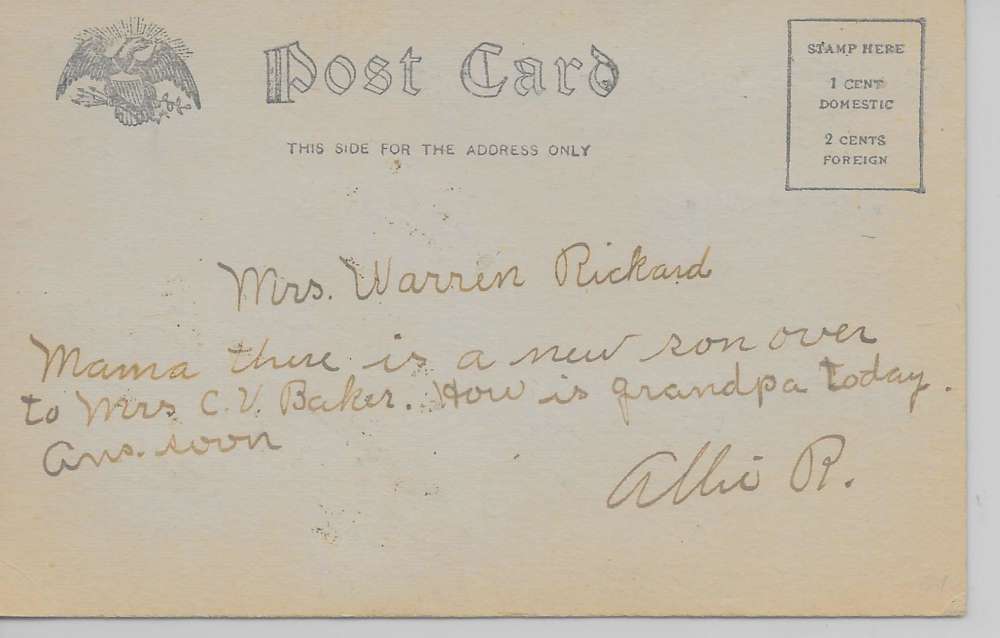 Post Card
THIS SIDE FOR THE ADDRESS ONLY
STAMP HERE
1 CENT
DOMESTIC
2 CENTS
FOREIGN
Mrs. Warren Rickard
Mama there is a new son over
to Mrs C. V. Baker. How is grandpa today.
Ans. soon
Allie R.